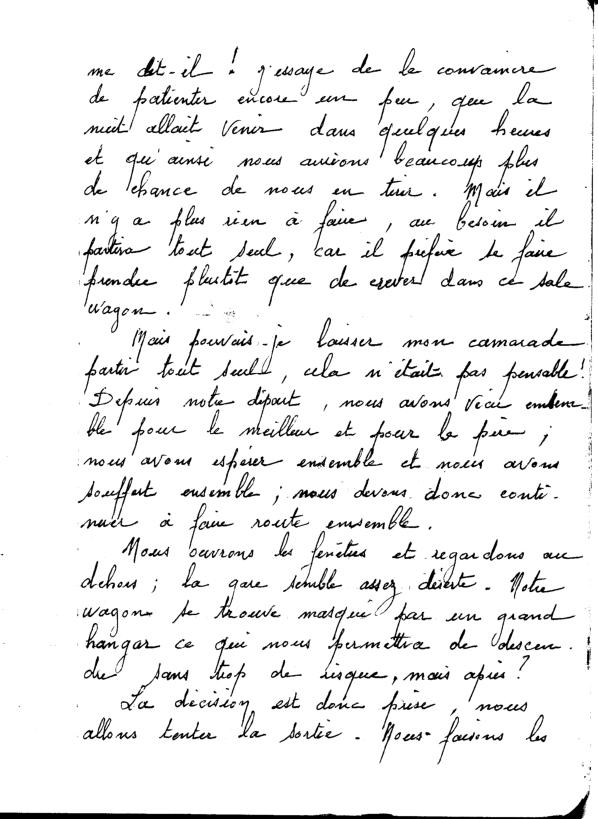 me dit-il ! J'essaye de le convaincre
de patienter encore un peu, que la
nuit allait venir dans quelques heures
et qu'ainsi nous aurions beaucoup plus
de chance de nous en tirer. Mais il
n'y a plus rien à faire, au besoin il
partira tout seul, car il préfère se faire
prendre plutôt que de crever dans ce sale
wagon.
Mais pouvais-je laisser mon camarade
partir tout seul, cela n'était pas pensable !
Depuis notre départ, nous avons vécu ensem-
ble pour le meilleur et pour le pire ;
nous avons espérer ensemble et nous avons
souffert ensemble ; nous devons donc conti-
nuer à faire route ensemble.
Nous ouvrons les fenêtres et regardons au
dehors ; la gare semble assez déserte. Notre
wagon se trouve masqué par un grand
hangar ce qui nous permettra de descen-
dre sans trop de risque, mais après ?
La décision est donc prise, nous
allons tenter la sortie. Nous faisons les